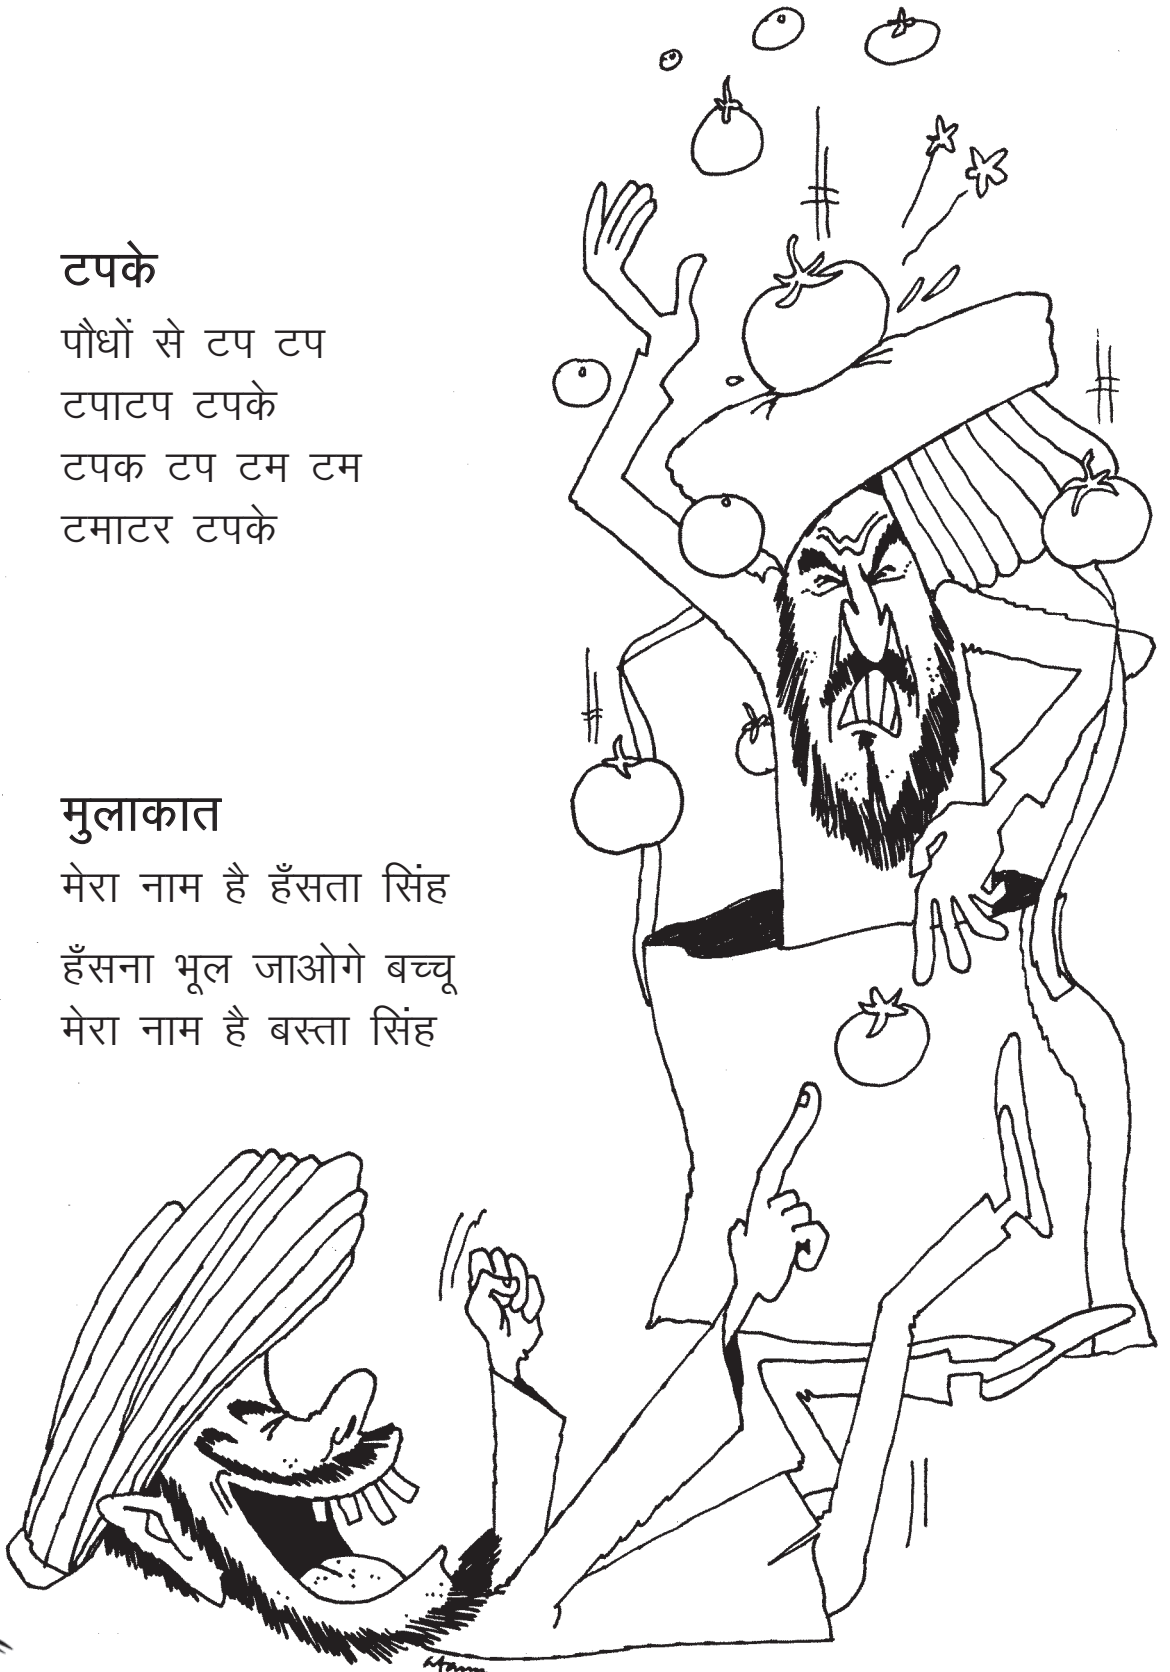 टपके
पौधों से टप टप
टपाटप टपके
टपक टप टम टम
टमाटर टपके
मुलाकात
मेरा नाम है हँसता सिंह
हँसना भूल जाओगे बच्चू
मेरा नाम है बस्ता सिंह